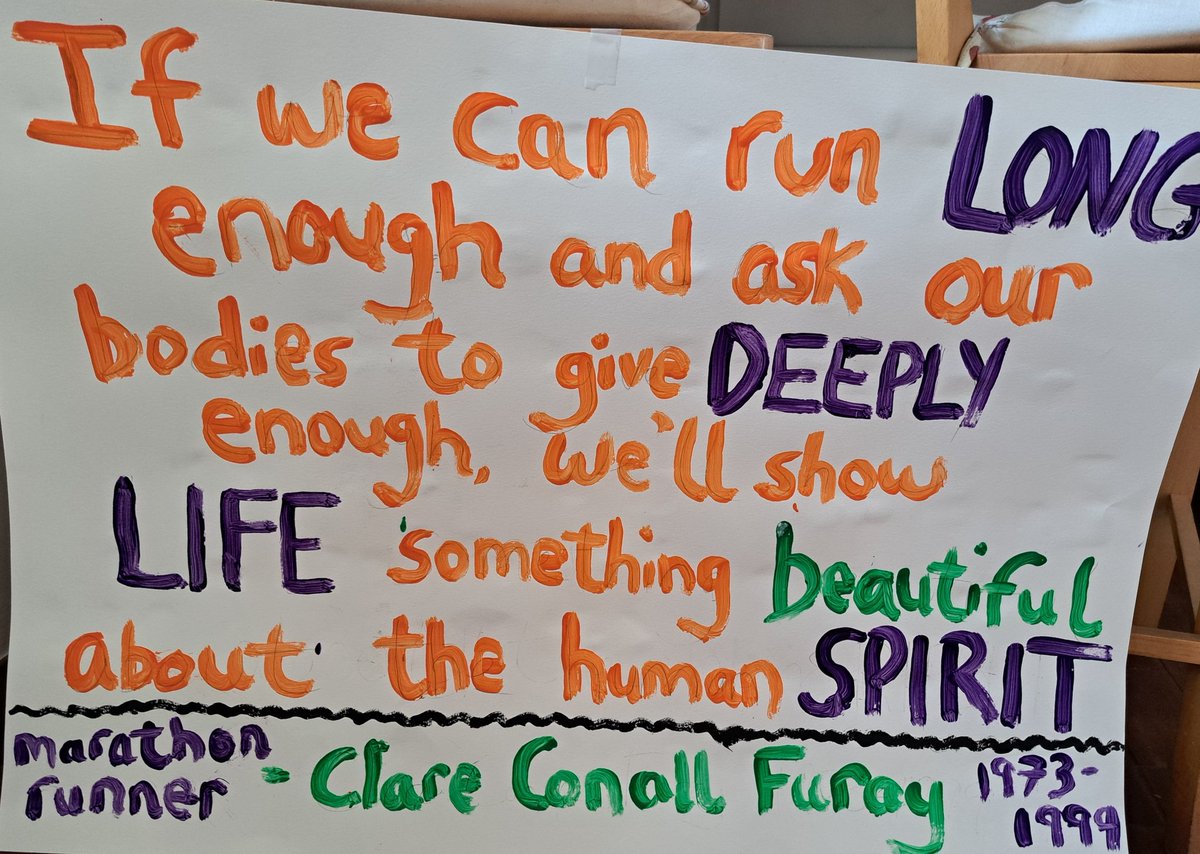 If we can run LONG
enough and ask our
bodies to give DEEPLY
enough, we'll show
LIFE something beautiful
about the human SPIRIT
marathon
runner - Clare Conall Furay 1973-
1999